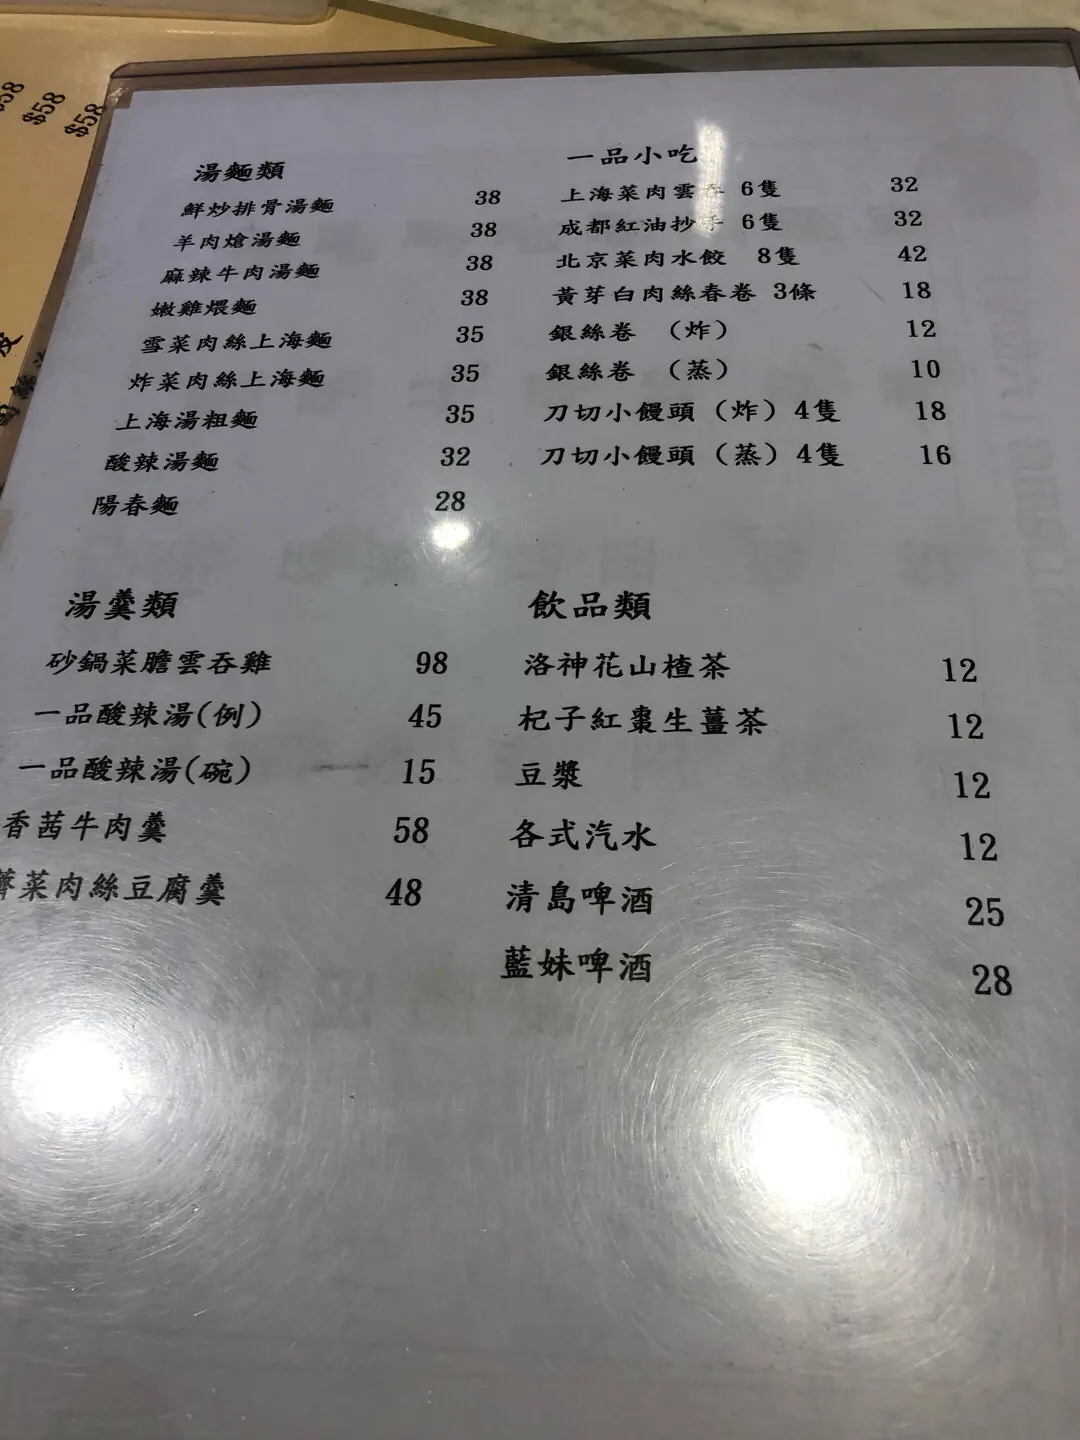 $58
$58
$58
湯麵類
鮮炒排骨湯麵 38
羊肉熗湯麵 38
麻辣牛肉湯麵 38
嫩雞煨麵 38
雪菜肉絲上海麵 35
炸菜肉絲上海麵 35
上海湯粗麵 35
酸辣湯麵 32
陽春麵 28
一品小吃
上海菜肉雲吞 6隻 32
成都紅油抄手 6隻 32
北京菜肉水餃 8隻 42
黃芽白肉絲春卷 3條 18
銀絲卷 （炸） 12
銀絲卷 （蒸） 10
刀切小饅頭（炸）4隻 18
刀切小饅頭（蒸）4隻 16
湯羹類
砂鍋菜膽雲吞雞 98
一品酸辣湯(例) 45
一品酸辣湯(碗) 15
香茜牛肉羹 58
薺菜肉絲豆腐羹 48
飲品類
洛神花山楂茶 12
杞子紅棗生薑茶 12
豆漿 12
各式汽水 12
清島啤酒 25
藍妹啤酒 28